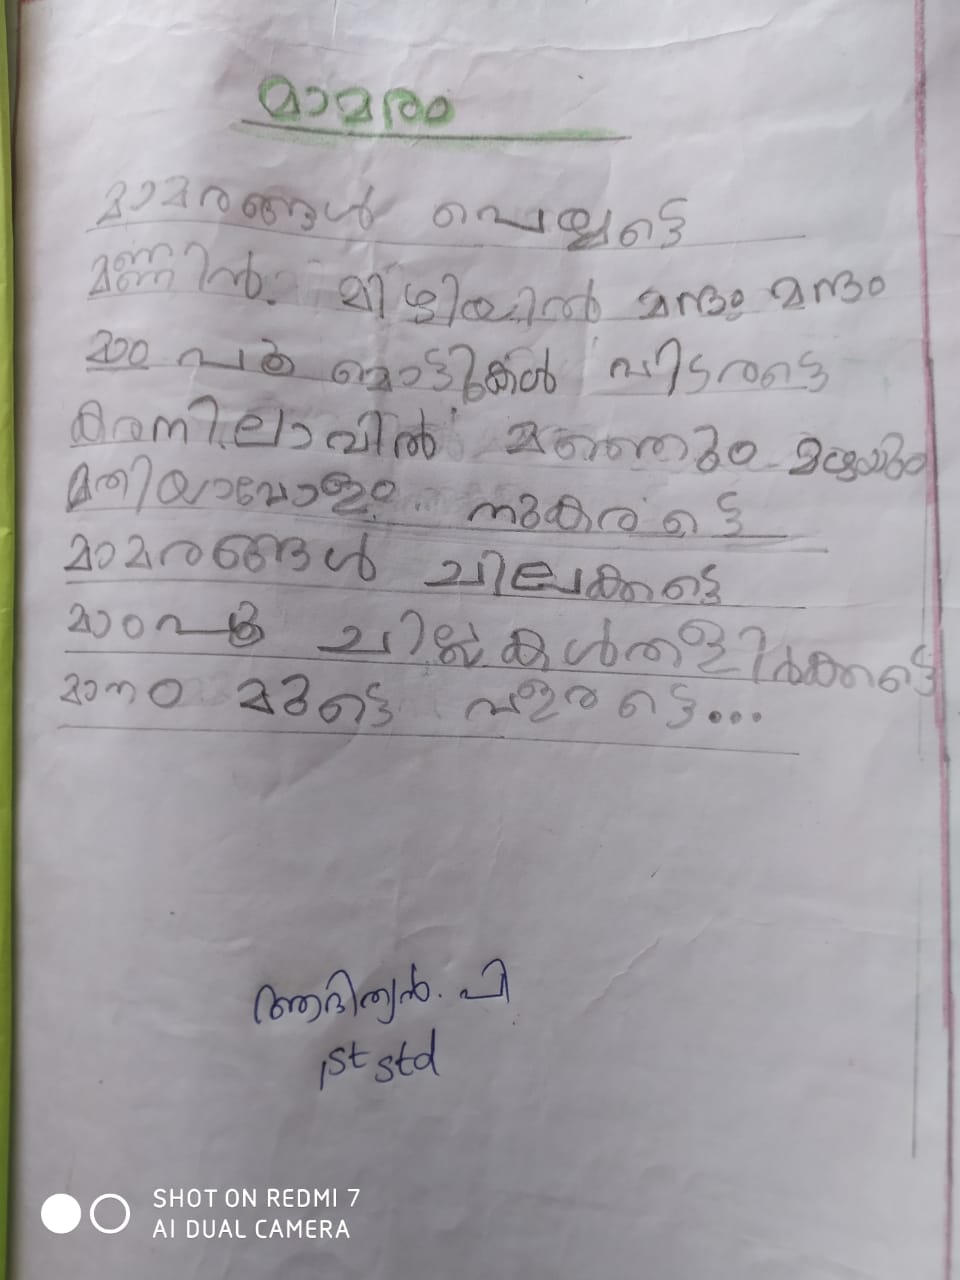 മാമരം
മാമരങ്ങൾ പെയ്യട്ടെ
മണ്ണിൻ മിഴിയിൽ മന്ദം മന്ദം
മാമ്പൂ മൊട്ടുകൾ വിടരട്ടെ
കരനിലാവിൽ മഞ്ഞും മഴയും
മതിയാവോളം നുകരട്ടെ
മാമരങ്ങൾ ചിലക്കട്ടെ
ചില്ലകൾതളിർക്കട്ടെ
മാനം മുട്ടെ വളരട്ടെ...
ആദിത്യൻ. പി
1st std
SHOT ON REDMI 7
AI DUAL CAMERA